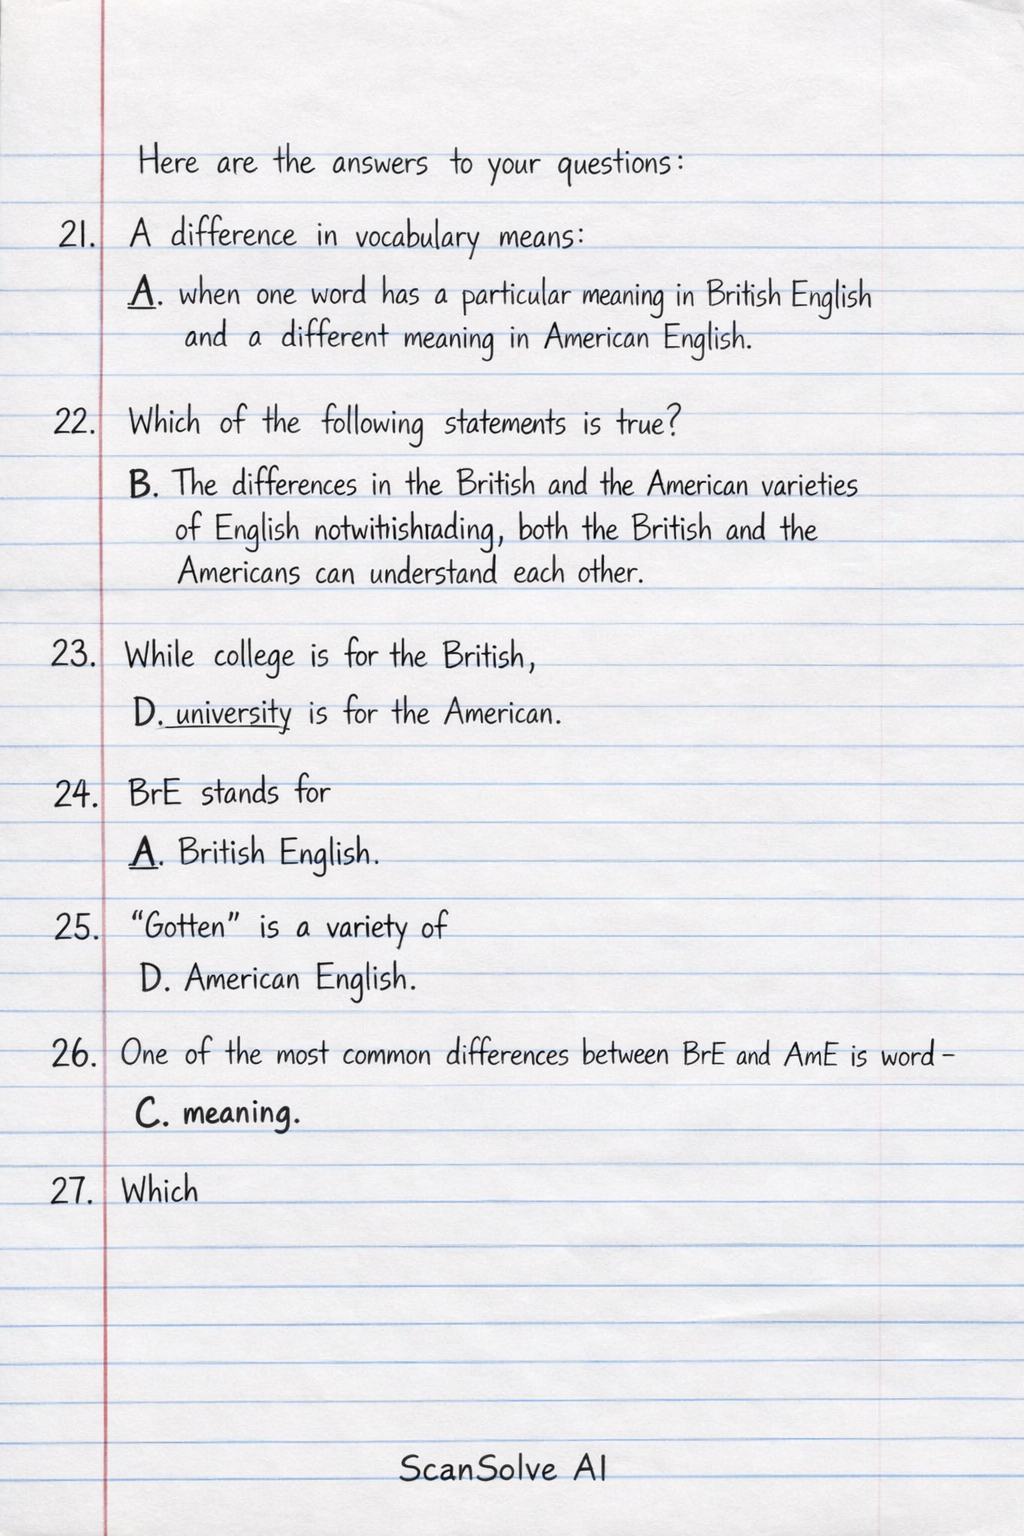 Here are the answers to your questions:
21. A difference in vocabulary means:
A. when one word has a particular meaning in British English
and a different meaning in American English.
22. Which of the following statements is true?
B. The differences in the British and the American varieties
of English notwithishrading, both the British and the
Americans can understand each other.
23. While college is for the British,
D. university is for the American.
24. BrE stands for
A. British English.
25. “Gotten” is a variety of
D. American English.
26. One of the most common differences between BrE and AmE is word –
C. meaning.
27. Which
ScanSolve AI